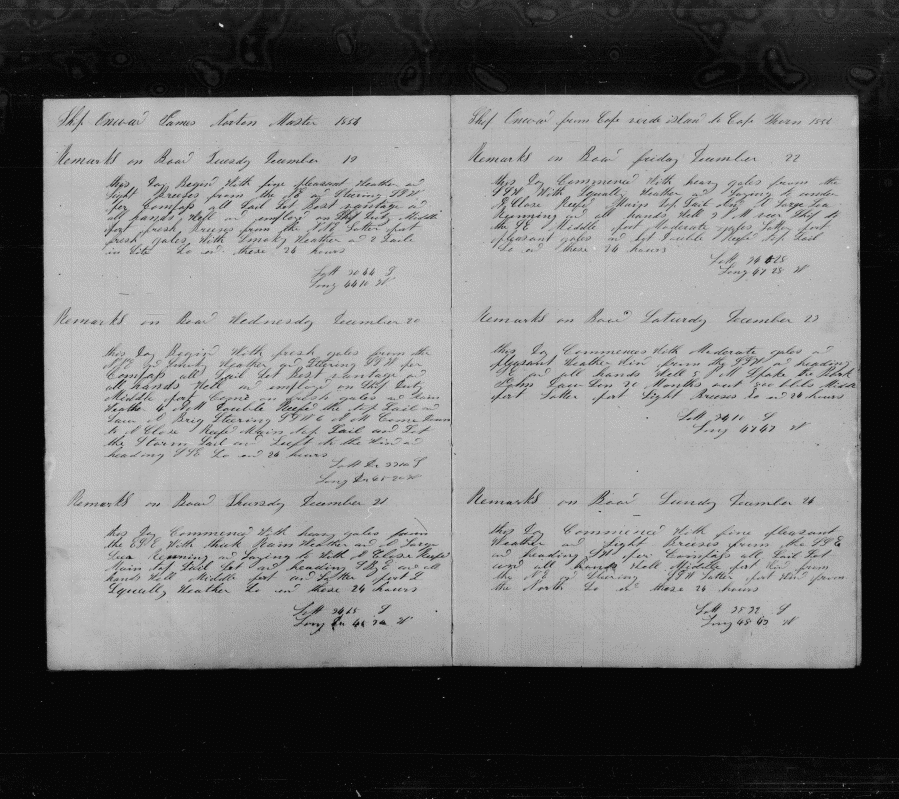 Ship Onward James Norton Master 1854
Remarks on Board Tuesday December 19
this Day Begins With fine pleasant Weather and
light Breises from the SE and Steering SSW
per Compass all Sail Set Best vantage and
all hands Well and employed on Ship Duty Middle
part fresh Breises from the Latter part
fresh gales With Smoky Weather and 2 Sails
in Site So ends these 24 hours
Latt 20 44 S
Long 44 10 W
Remarks on Board Wednesday December 20
this Day Begins With fresh gales from the
and Smoky Weather and Steering SSW per
Compass all Sail Set Best vantage and
all hands Well and employed on Ship Duty
Middle part Comes on fresh gales and Rain
Weather 4 AM Double Reefed the top Sail and
Saw A Brig Steering AM Came Down
to A Close Reefed Main top Sail and
the Storm Sail and to the Wind and
heading SSE So ends 24 hours
Latt Dr S
Long Dr W
Remarks on Board Thursday December 21
this Day Commences With heavy gales from
the ESE With thick Rain Weather and A Large
Sea Running and Laying to With A Close Reefed
Main top Sail Set and heading and all
hands Well Middle part and Latter part
Squally Weather So ends these 24 hours
Latt 24 S
Long Dr W
Ship Onward from Cape verde island to Cape Horn 1854
Remarks on Board friday December 22
this Day Commences With heavy gales from the
SSW With Squally Weather and Laying to under
A Close Reefed Main top Sail And A Large Sea
Running and all hands Well 2 PM Ship to
the SE Middle part Moderate gales Latter part
pleasant gales and Set Double Reefed top Sail
So ends these 24 hours
Latt 24 S
Long 47 28 W
Remarks on Board Saturday December 23
this Day Commences With Moderate gales and
pleasant Weather Wind from the SSW and heading
SE and all hands Well 5 PM Spoke the Bark
20 Months out 200 bbls Middle
part Latter part Light Breises So ends 24 hours
Latt 24 10 S
Long 47 47 W
Remarks on Board Sunday December 24
this Day Commences With fine pleasant
Weather and Light Breises from the SSE
and heading SW per Compass all Sail Set
and all hands Well Middle part Wind from
the NE and Steering SSW Latter part Wind from
the North So ends these 24 hours
Latt 25 S
Long 48 43 W